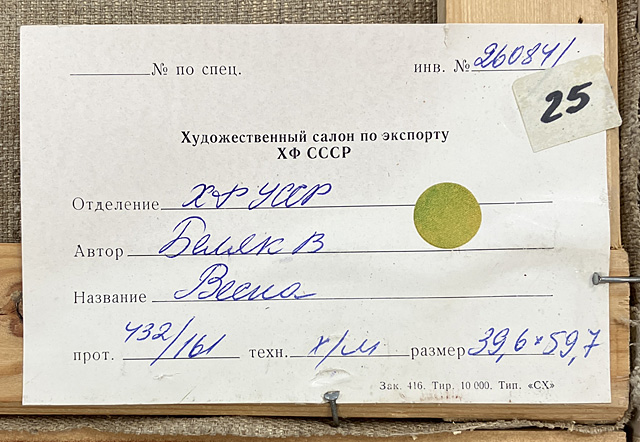 № по спец. инв. № 260841
25
Художественный салон по экспорту
ХФ СССР
Отделение ХФ УССР
Автор Беляк В
Название Весна
прот. 432/161 техн. х/м размер 39,6 × 59,7
Зак. 416. Тир. 10 000. Тип. «СХ»